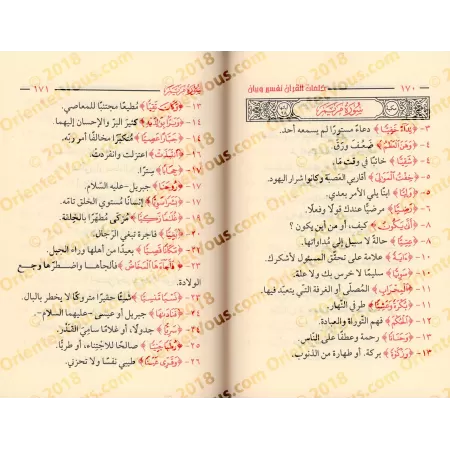 ١٧٠ كلمات القرآن تفسير وبيان
سورة مريم
٣- ﴿نداءً خفيًّا﴾ دعاءً مستورًا لم يسمعه أحد.
٤- ﴿وهن العظم﴾ ضَعُف ورقّ.
٤- ﴿شقيًّا﴾ خائبًا في وقت مّا.
٥- ﴿الموالي﴾ أقاربي العصبة وكانوا شرار اليهود.
٥- ﴿وليًّا﴾ ابنًا يلي الأمر بعدي.
٦- ﴿رضيًّا﴾ مرضيًّا عندك قولًا وفعلًا.
٨- ﴿أنّى يكون﴾ كيف، أو من أين يكون؟
٨- ﴿عتيًّا﴾ حالةً لا سبيل إلى مُداواتها.
١٠- ﴿آية﴾ علامة على تحقّق المسئول لأشكرك.
١٠- ﴿سويًّا﴾ سليمًا لا خرس بك ولا علة.
١١- ﴿المحراب﴾ المُصلّى أو الغرفة التي يتعبّد فيها.
١١- ﴿بكرة وعشيًّا﴾ طرفي النّهار.
١٢- ﴿الحكم﴾ فهم التّوراة والعبادة.
١٣- ﴿وحنانًا﴾ رحمة وعطفًا على النّاس.
١٣- ﴿وزكاة﴾ بركة، أو طهارة من الذنوب.
سورة مريم ١٧١
١٣- ﴿وكان تقيًّا﴾ مُطيعًا مجتنبًا للمعاصي.
١٤- ﴿وبرًّا بوالديه﴾ كثيرَ البرّ والإحسان إليهما.
١٤- ﴿جبّارًا عصيًّا﴾ مُتكبّرًا مخالفًا أمر ربّه.
١٦- ﴿انتبذت﴾ اعتزلت وانفردتْ.
١٧- ﴿حجابًا﴾ سِترًا.
١٧- ﴿روحنا﴾ جبريل - عليه السّلام.
١٧- ﴿بشرًا سويًّا﴾ إنسانًا مُستوي الخلق تامّه.
﴿غلامًا زكيًّا﴾ مُزكّى مُطهّرًا بالخلقة.
﴿بغيًّا﴾ فاجرةً تبغي الرّجال.
٢٢- ﴿مكانًا قصيًّا﴾ بعيدًا من أهلها وراء الجبل.
٢٣- ﴿فأجاءها المخاض﴾ فألجأها واضطرّها وجع
الولادة.
٢٣- ﴿نسيًا منسيًّا﴾ شيئًا حقيرًا متروكًا لا يخطر بالبال.
٢٤- ﴿فناداها﴾ جبريل أو عيسى - عليهما السلام-.
٢٤- ﴿سريًّا﴾ جدولًا، أو غلامًا ساميَ القَدْر.
٢٥- ﴿رطبًا جنيًّا﴾ صالحًا للاجتناء، أو طريًّا.
٢٦- ﴿وقرّي عينًا﴾ طيبي نفسًا ولا تحزني.
© 2018 Orientetous.com